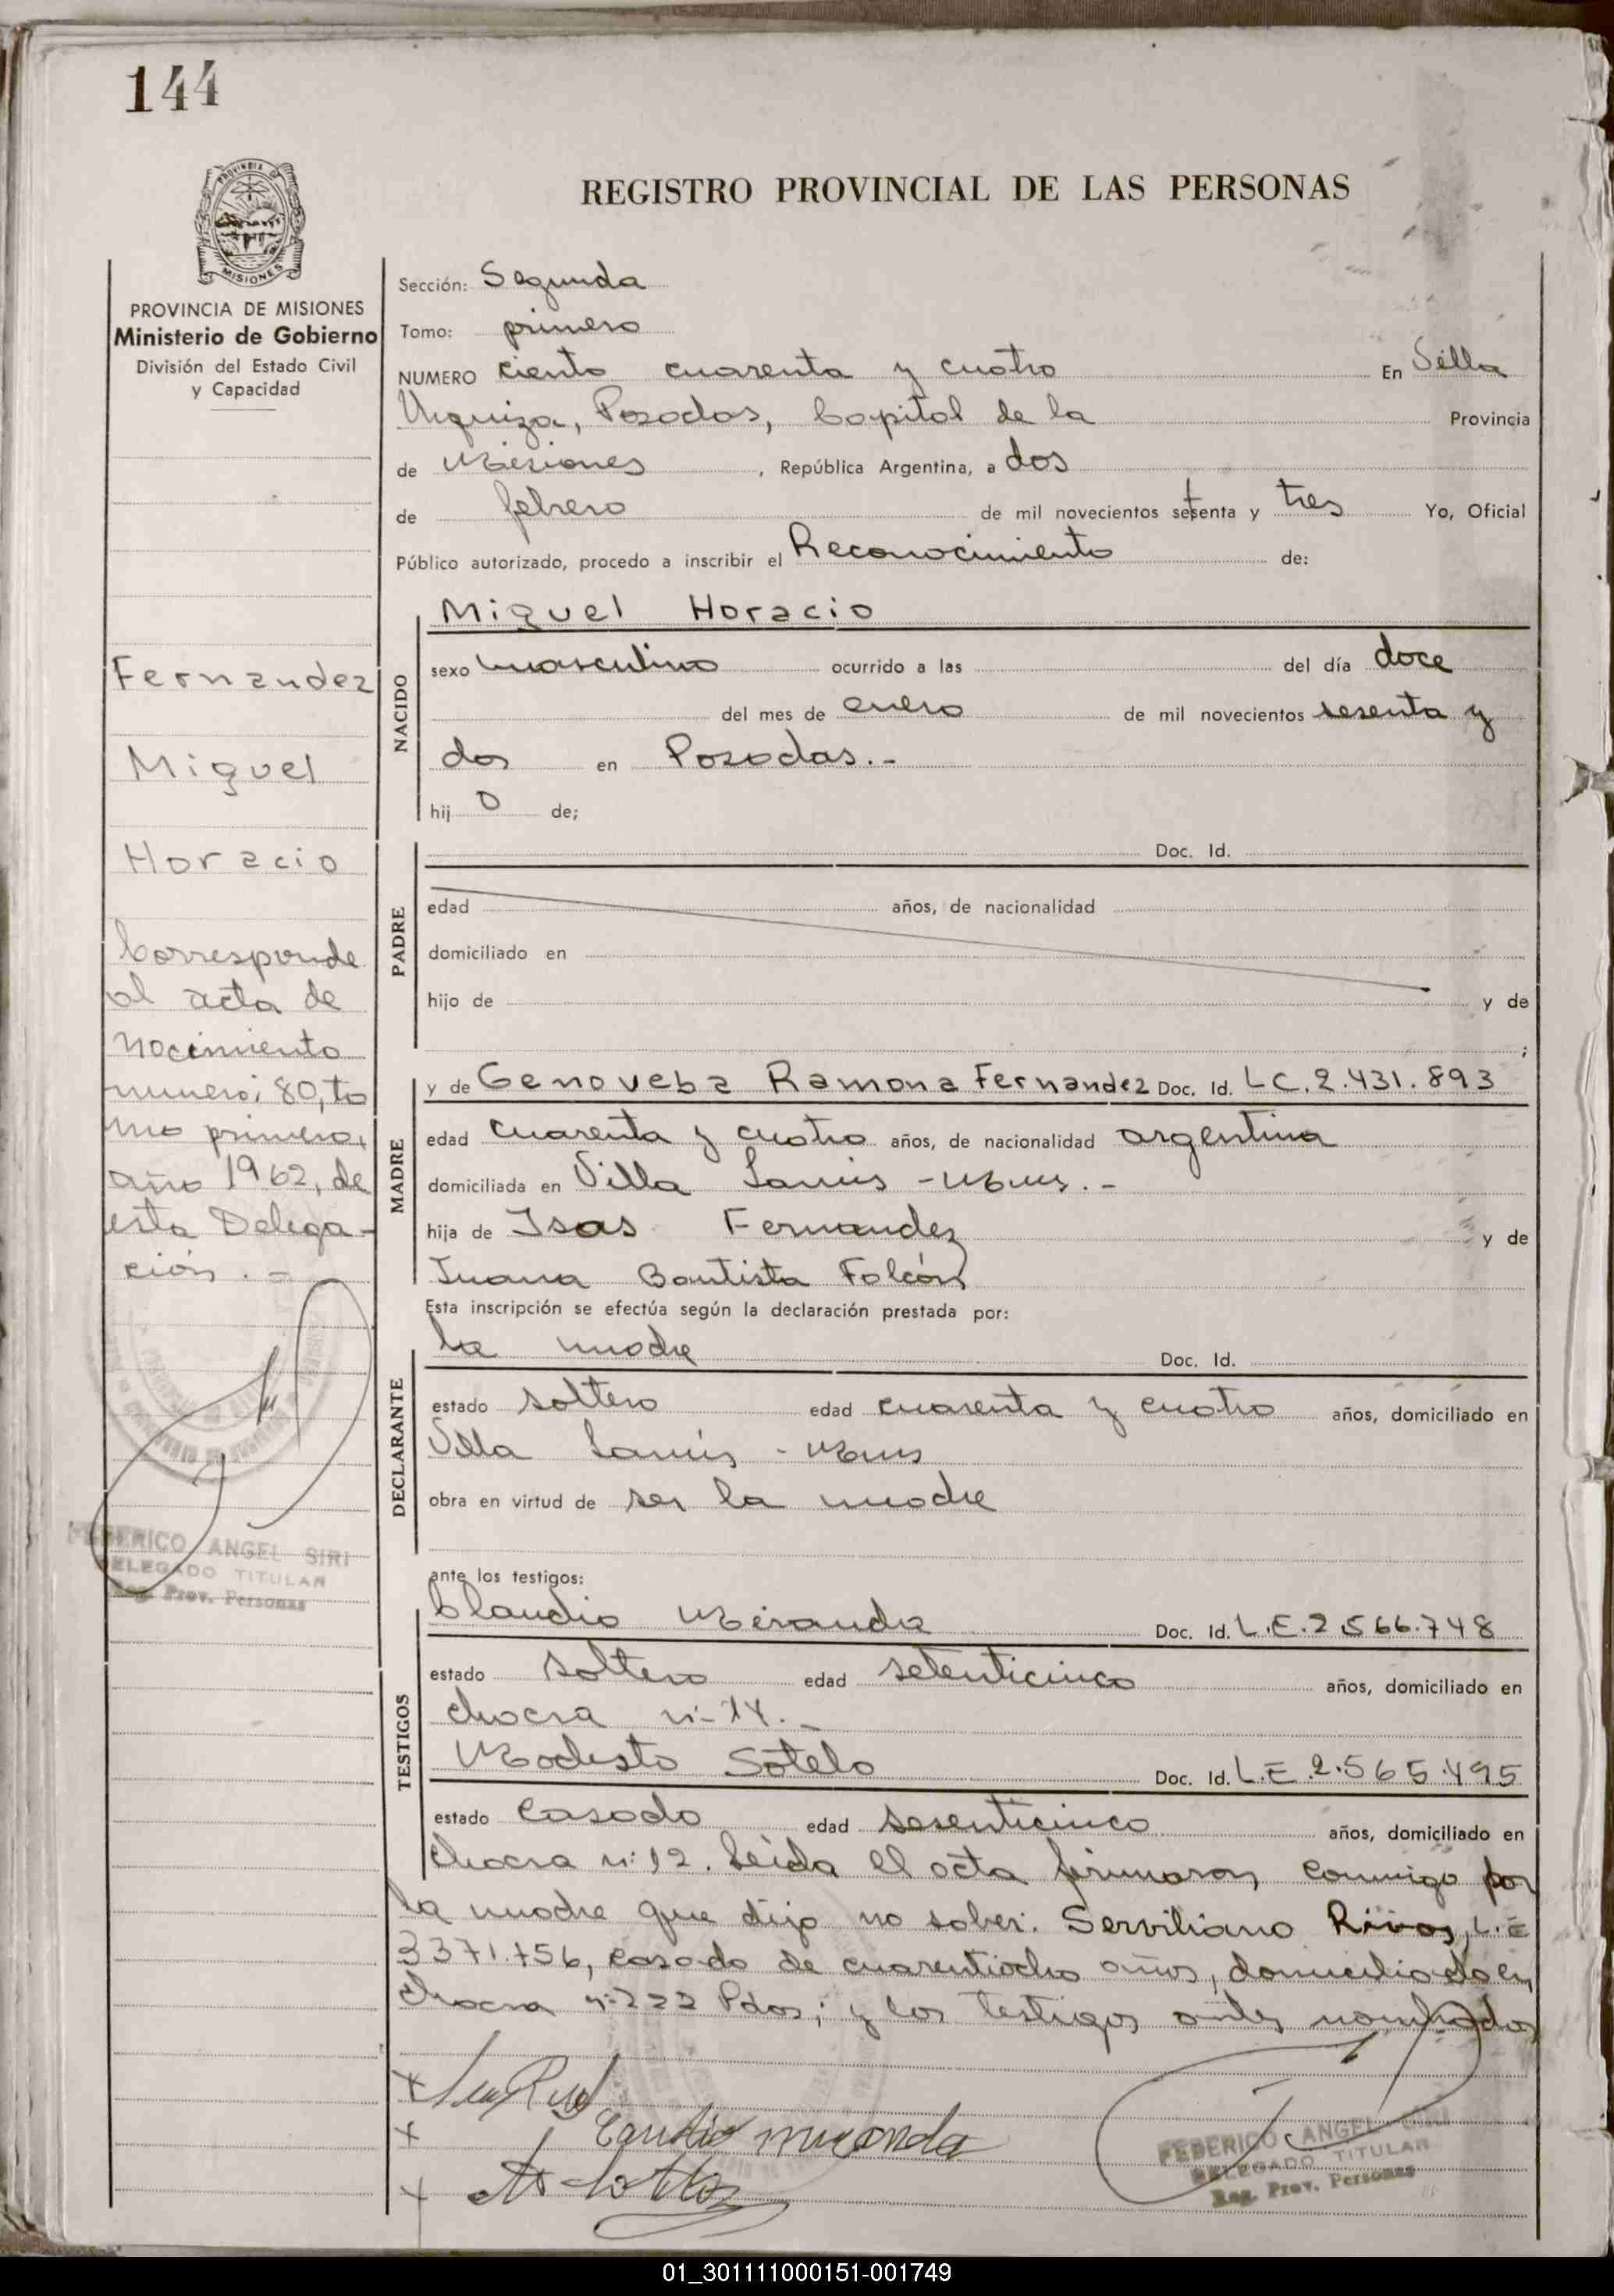 144
REGISTRO PROVINCIAL DE LAS PERSONAS
PROVINCIA DE MISIONES
Ministerio de Gobierno
División del Estado Civil
y Capacidad
Fernandez
Miguel
Horacio
Corresponde
al acta de
nacimiento
numero: 80, to
mo primero,
año 1962, de
esta Delega-
ción.-
FEDERICO ANGEL SIRI
DELEGADO TITULAR
Reg. Prov. Personas
Sección: Segunda
Tomo: primero
NUMERO ciento cuarenta y cuatro En Villa
Urquiza, Posadas, Capital de la Provincia
de Misiones, República Argentina, a dos
de febrero de mil novecientos setenta y tres Yo, Oficial
Público autorizado, procedo a inscribir el Reconocimiento de:
NACIDO
Miguel Horacio
sexo masculino ocurrido a las del día doce
del mes de enero de mil novecientos sesenta y
dos en Posadas.-
hij o de;
PADRE
Doc. Id.
edad años, de nacionalidad
domiciliado en
hijo de y de
;
MADRE
y de Genoveba Ramona Fernandez Doc. Id. LC.2.431.893
edad cuarenta y cuatro años, de nacionalidad argentina
domiciliada en Villa Lanús -
hija de Isas Fernandez y de
Juana Bautista Falcón
Esta inscripción se efectúa según la declaración prestada por:
DECLARANTE
la madre Doc. Id.
estado soltera edad cuarenta y cuatro años, domiciliado en
Villa Lanús -
obra en virtud de ser la madre
ante los testigos:
TESTIGOS
Claudio Miranda Doc. Id. L.E.2.566.748
estado soltero edad setenticinco años, domiciliado en
chacra nº 14.-
Modesto Sotelo Doc. Id. L.E.2.565.495
estado casado edad sesenticinco años, domiciliado en
chacra nº 12. Leída el acta firmaron conmigo por
la madre que dijo no saber: Serviliano Rivas, L.E
3371.756, casado de cuarentiocho años, domiciliado en
chacra nº 222 Pdas; y los testigos antes nombrados
Claudio miranda
FEDERICO ANGEL SIRI
DELEGADO TITULAR
Reg. Prov. Personas
01_301111000151-001749